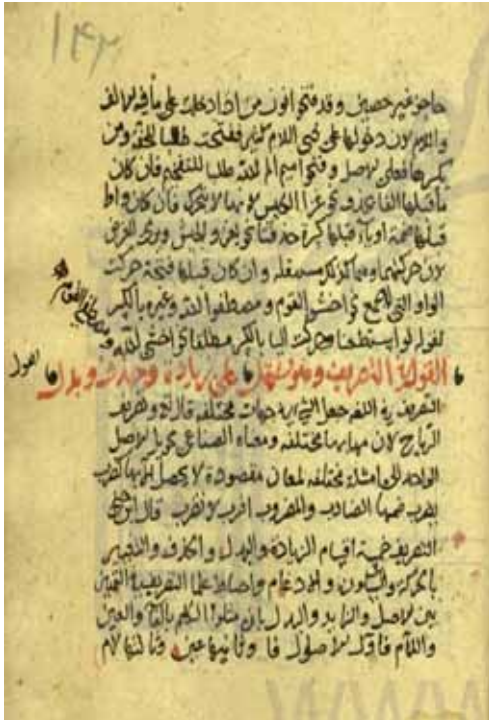 ١٤٢
حاجز غير حصين وقد فتحوا نون من اذا دخلت على ما فيه الالف
واللام لان دخولها على ذي اللام كثير ففتحت طلبا للخفة ومن
يكسرها فعلى الاصل وفتحوا ميم الم الله طلبا للتفخيم فان كان
ما قبلها
قبلها ضمة او ياء قبلها كسرة حذفتا نحو يغزو الجيش ويرمي الغرض
لان حركتهما وان كان قبلها فتحة حركت
الواو التي للجمع نحو اخشوا القوم ومصطفوا الله وغيره بالكسر
كقوله لو استطعنا وحركت اليا بالكسر مطلقا نحو اخشي الله و
مصطفي القوم
القول في التصريف على زيادة وحذف وبدل
اقول
التصريف في اللغة جعل الشي في جهات مختلفة وتصريف
الرياح لان مهابها مختلفة ومعناه الصناعي تحويل الاصل
الواحد الى امثلة مختلفة لمعان مقصودة لا يحصل الا بها كضرب
يضرب ضربا الضارب والمضروب اضرب لا تضرب قال ابن جني
التصريف خمسة اقسام الزيادة والبدل والحذف والتغيير
بالحركة والسكون والادغام علما التصريف
بين الاصل والزايد والبدل بان مثلوا الكلم بالفا والعين
واللام فاول الاصول فا وثانيها عين وثالثها لام